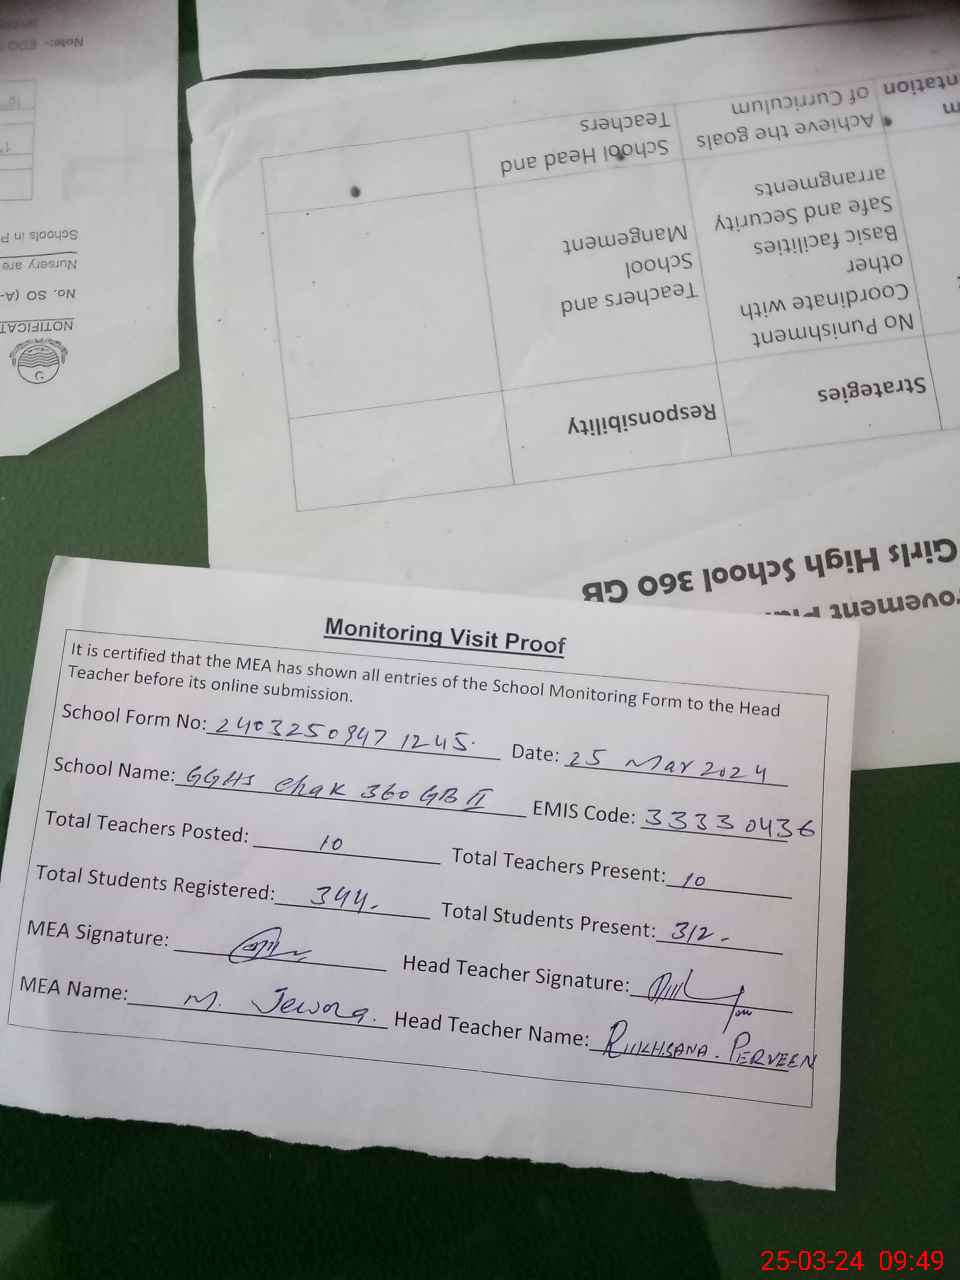 Note:- EDO
NOTIFICAT
No. SO (A-
Nursery are
Schools in P
ovement
Girls High School 360 GB
Strategies
Responsibility
No Punishment
Coordinate with
other
Basic facilities
Safe and Security
arrangments
Teachers and
School
Mangement
Achieve the goals
of Curriculum
School Head and
Teachers
ntation
Monitoring Visit Proof
It is certified that the MEA has shown all entries of the School Monitoring Form to the Head
Teacher before its online submission.
School Form No: 2403250947 1245. Date: 25 Mar 2024
School Name: GGHS Chak 360 GB II EMIS Code: 33330436
Total Teachers Posted: 10 Total Teachers Present: 10
Total Students Registered: 344. Total Students Present: 312.
MEA Signature: Head Teacher Signature:
MEA Name: M. Head Teacher Name: RUKHSANA. PERVEEN
25-03-24 09:49